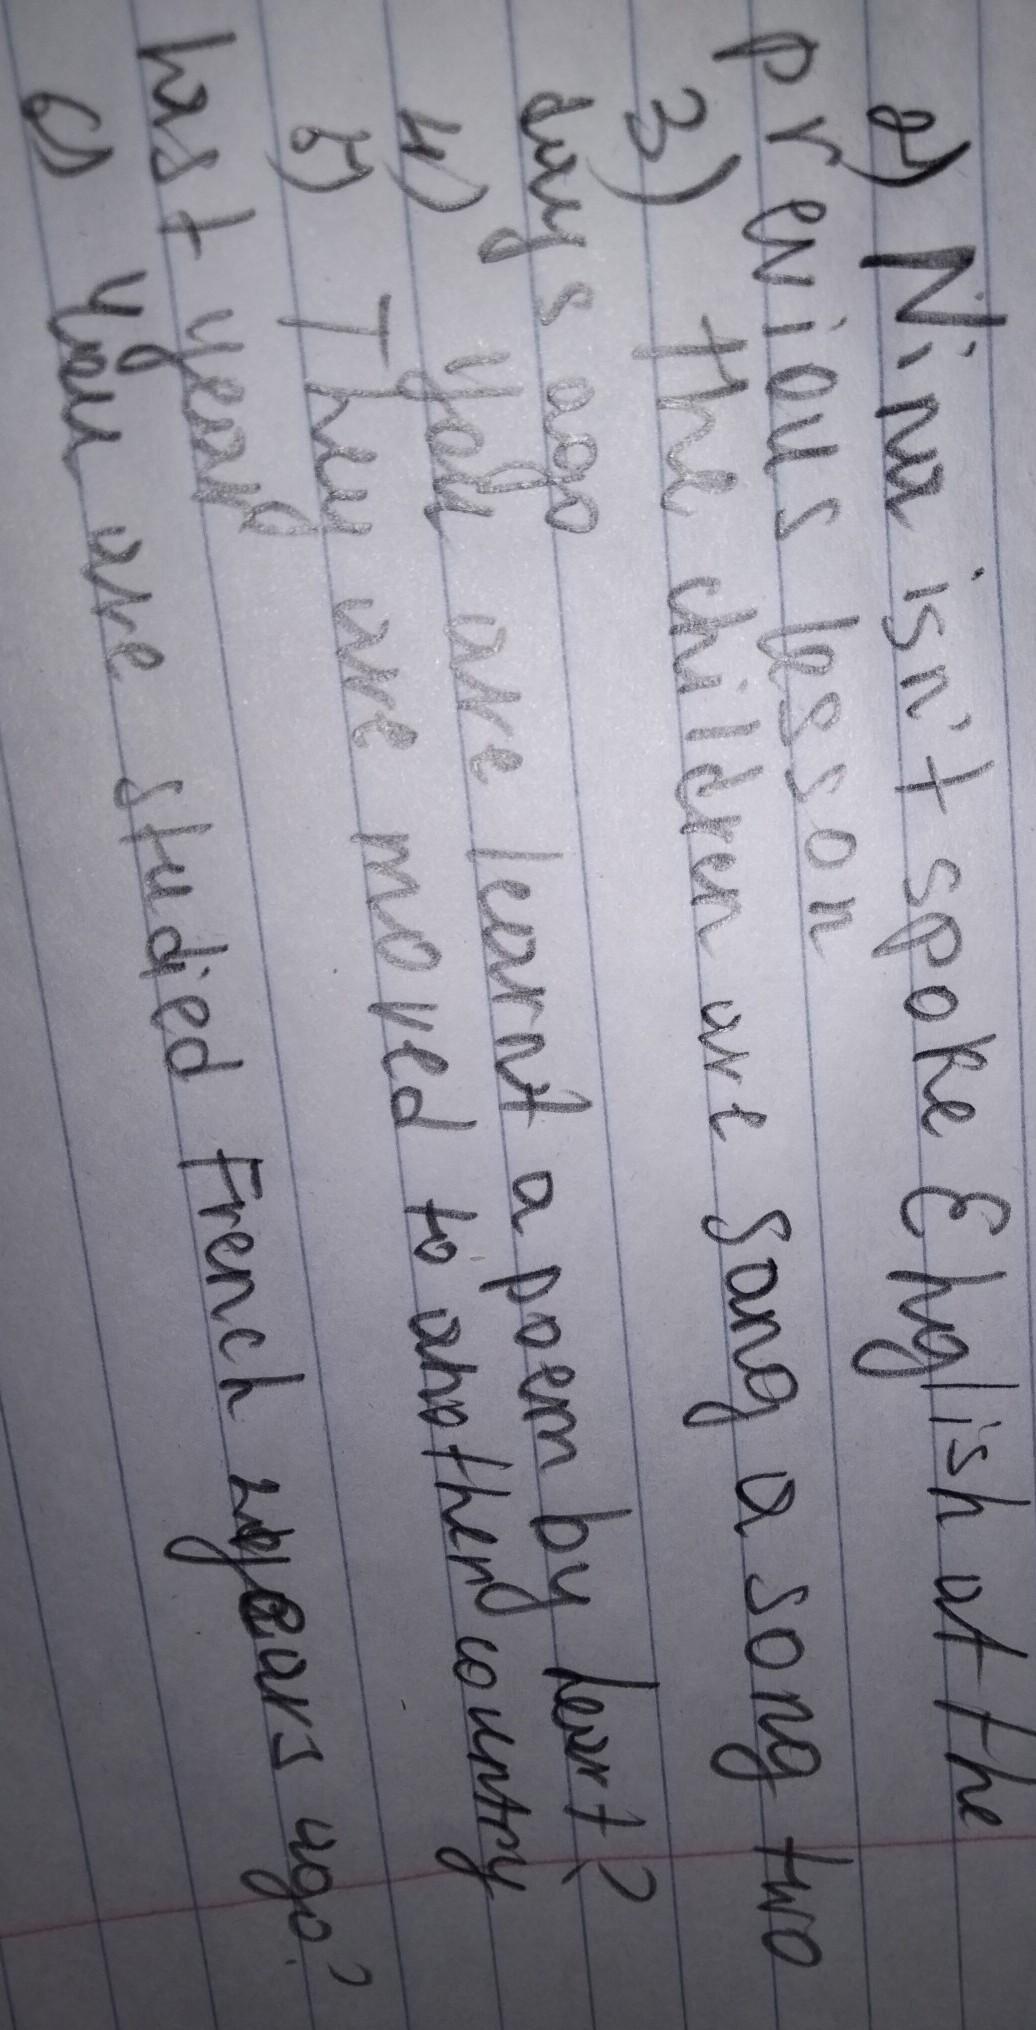 2) Nina isn't spoke English at the
previous lesson
3) the children are sang a song two
days ago
4) you are learnt a poem by heart?
5) They are moved to another country
last year
6) you are studied French years ago?